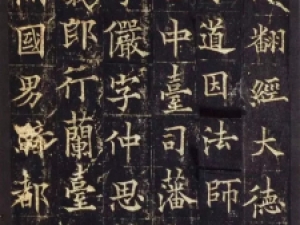 翻經大德
道因法師
中臺司藩
儼字仲思
郎行蘭臺
國男騎都